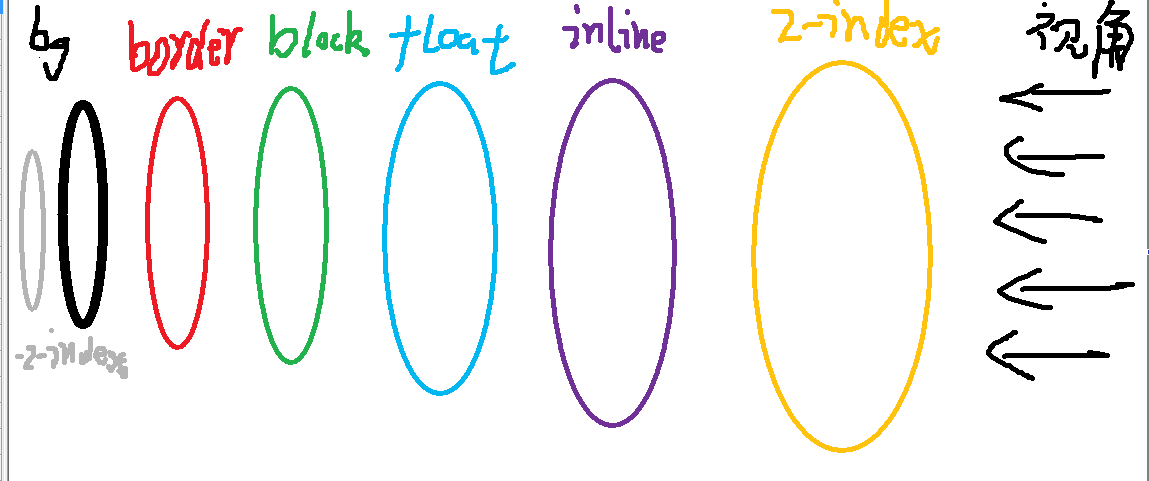 bg
border
block
float
inline
z-index
视角
-z-index